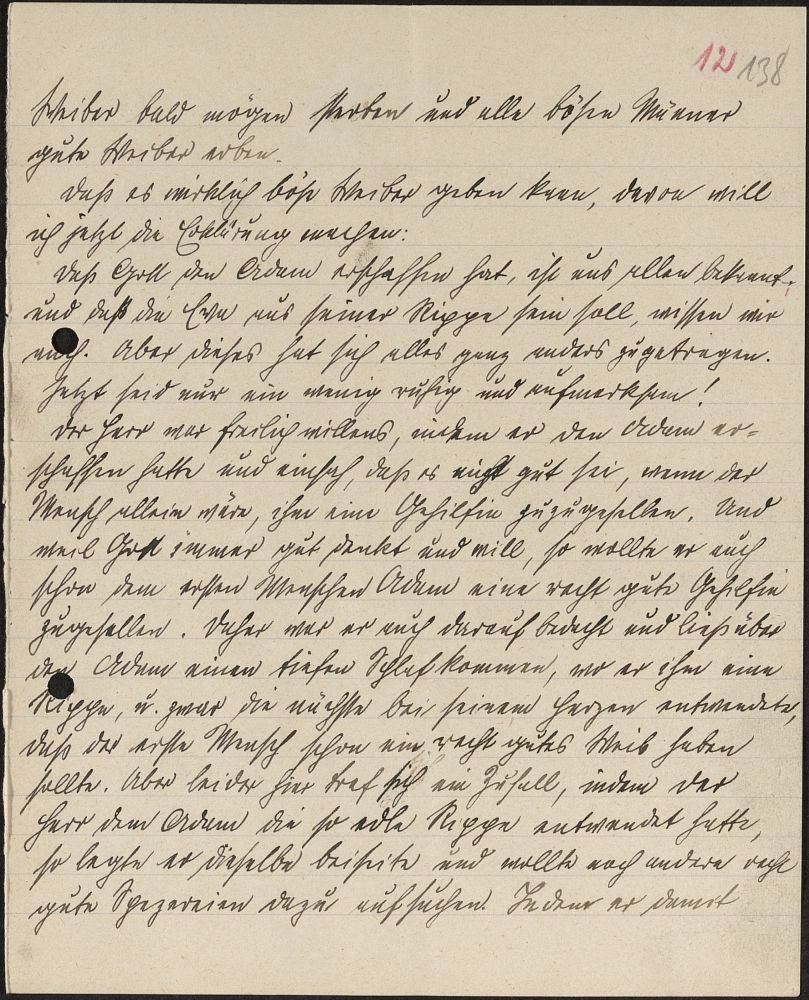 12 138
Weiber bald mögen sterben und alle bösen Männer
gute Weiber erben.
Daß es wirklich böse Weiber geben kann, davon will
ich jetzt die Erklärung machen:
Daß Gott den Adam erschaffen hat, ist uns allen bekannt,
und daß die Eva aus seiner Rippe sein soll, wissen wir
auch. Aber dieses hat sich alles ganz anders zugetragen.
Jetzt seid nur ein wenig ruhig und aufmerksam!
Der Herr war freilich willens, indem er den Adam er=
schaffen hatte und einsah, daß es nicht gut sei, wenn der
Mensch allein wäre, ihm eine Gehilfin zuzugesellen. Und
weil Gott immer gut denkt und will, so wollte er auch
schon dem ersten Menschen Adam eine recht gute Gehilfin
zugesellen. Daher war er auch darauf bedacht und ließ über
den Adam einen tiefen Schlaf kommen, wo er ihm eine
Rippe, u. zwar die nächste bei seinem Herzen entwendete,
daß der erste Mensch schon ein recht gutes Weib haben
sollte. Aber leider hier traf sich ein Zufall, indem der
Herr dem Adam die so edle Rippe entwendet hatte,
so legte er dieselbe beiseite und wollte noch andere recht
gute Spezereien dazu aufsuchen. Indem er damit